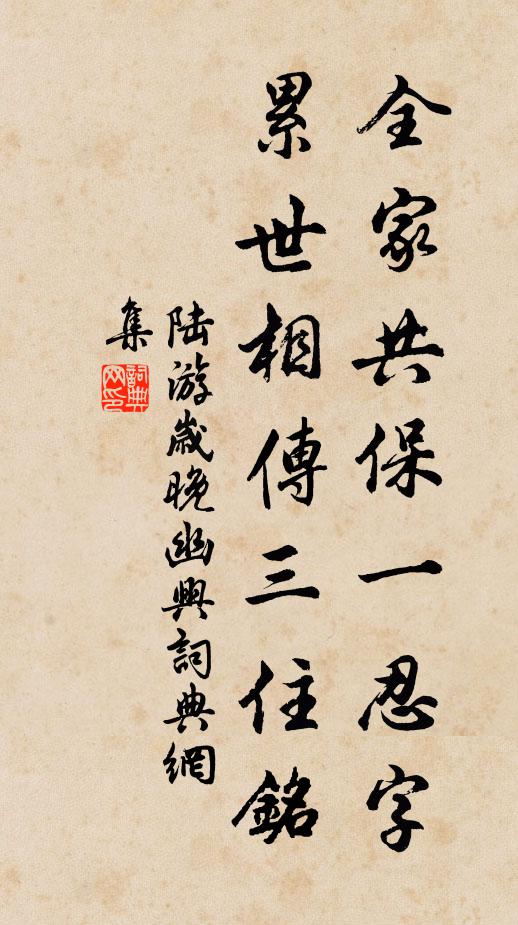 全家共保一忍字
累世相傳三住銘
陆游歲晚幽興詞典網
集
詞典
网印